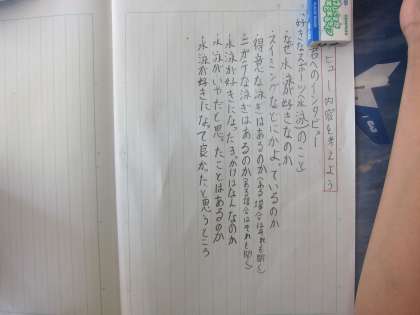 ビュー内容を考えよう
者へのインタビュー
好きなスポーツ(水泳)のこと
・なぜ水泳が好きなのか
・スイミングなどにかよっているのか
・得意な泳ぎはあるのか(ある場合はそれも聞く)
・ニガテな泳ぎはあるのか(ある場合はそれも聞く)
・水泳が好きになったきっかけはなんなのか
・水泳がいやだと思ったことはあるのか
・水泳が好きになって良かったと思うところ